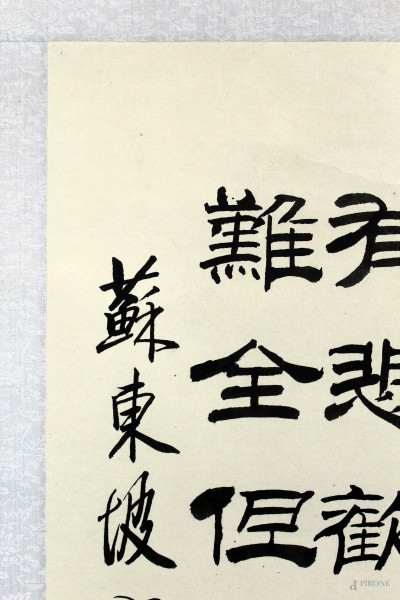 有悲歡
難全但
蘇東坡
PIRONE